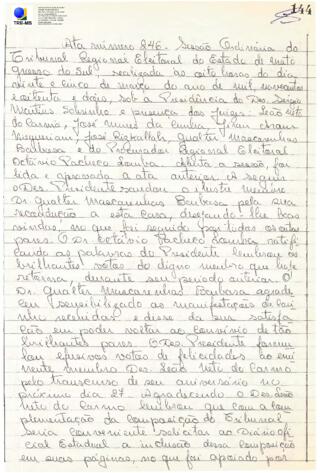 144
TRE-MS
Ata número 246 - Sessão Ordinária do
Tribunal Regional Eleitoral do Estado de Mato
Grosso do Sul, realizada às oito horas do dia
vinte e cinco de março do ano de mil, novecentos
e oitenta e dois, sob a Presidência do Des. Sérgio
Martins Sobrinho e presença dos Juízes: Leão Neto
do Carmo, José Nunes da Cunha, Jean
José Rizkallah, Gualter Mascarenhas
Barbosa e do Procurador Regional Eleitoral
Octávio Pacheco Lomba. Aberta a sessão, foi
lida e aprovada a ata anterior. A seguir
o Des. Presidente saudou o ilustre membro
Dr. Gualter Mascarenhas Barbosa pela sua
recondução a esta casa, desejando-lhe boas
vindas, no que foi seguido por todos os outros
pares. O Dr. Octávio Pacheco Lomba ratifi
cando as palavras do Presidente lembrou os
brilhantes votos do digno membro que hoje
retorna, durante seu período anterior. O
Dr. Gualter Mascarenhas Barbosa agrade
ceu sensibilizado as manifestações de cari
nho recebidas e disse da sua satisfa
ção em poder voltar ao convívio de tão
brilhantes pares. O Des. Presidente formu
lou efusivos votos de felicidades ao emi
nente membro Des. Leão Neto do Carmo
pelo transcurso de seu aniversário no
próximo dia 27. Agradecendo o Des. Leão
Neto do Carmo lembrou que com a com
plementação da composição do Tribunal
seria conveniente solicitar ao Diário Ofi
cial Estadual a inclusão dessa composição
em suas páginas, no que foi apoiado por